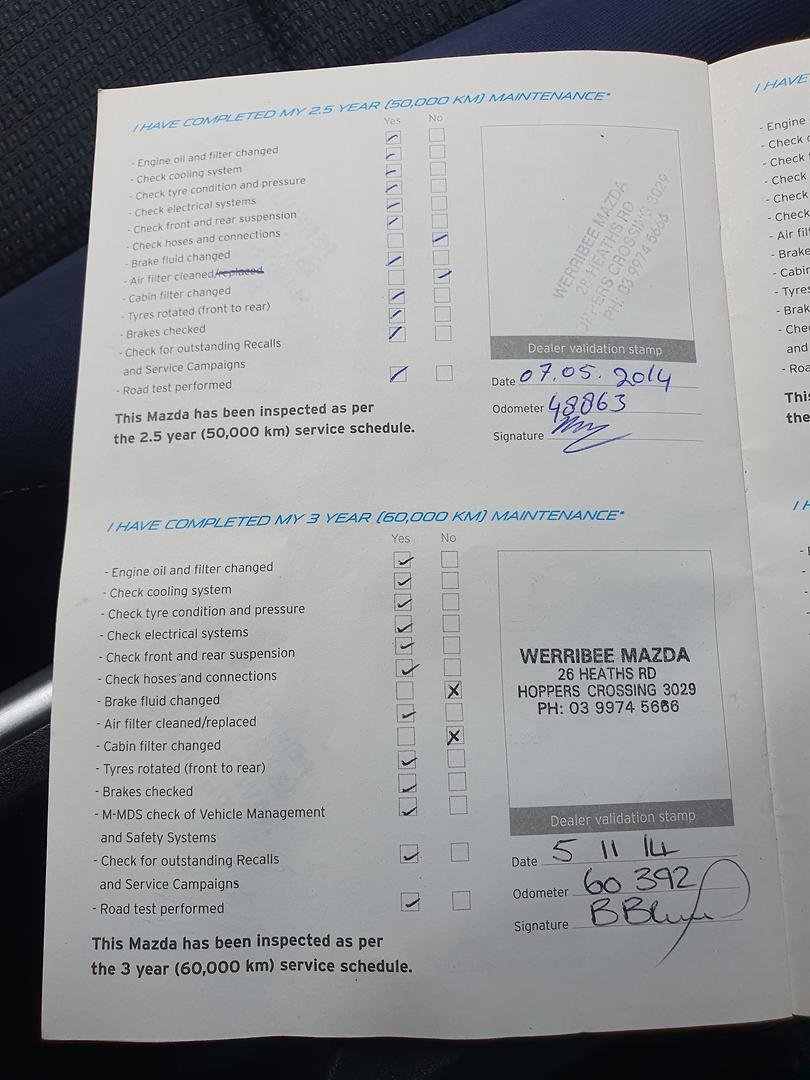 I HAVE COMPLETED MY 2.5 YEAR (50,000 KM) MAINTENANCE*
Yes No
- Engine oil and filter changed
- Check cooling system
- Check tyre condition and pressure
- Check electrical systems
- Check front and rear suspension
- Check hoses and connections
- Brake fluid changed
- Air filter cleaned/replaced
- Cabin filter changed
- Tyres rotated (front to rear)
- Brakes checked
- Check for outstanding Recalls
and Service Campaigns
- Road test performed
This Mazda has been inspected as per
the 2.5 year (50,000 km) service schedule.
WERRIBEE MAZDA
28 HEATHS RD
HOPPERS CROSSING 3029
PH: 03 9974 5666
Dealer validation stamp
Date 07.05.2014
Odometer 48863
Signature
I HAVE COMPLETED MY 3 YEAR (60,000 KM) MAINTENANCE*
Yes No
- Engine oil and filter changed
- Check cooling system
- Check tyre condition and pressure
- Check electrical systems
- Check front and rear suspension
- Check hoses and connections
- Brake fluid changed
- Air filter cleaned/replaced
- Cabin filter changed
- Tyres rotated (front to rear)
- Brakes checked
- M-MDS check of Vehicle Management
and Safety Systems
- Check for outstanding Recalls
and Service Campaigns
- Road test performed
This Mazda has been inspected as per
the 3 year (60,000 km) service schedule.
WERRIBEE MAZDA
26 HEATHS RD
HOPPERS CROSSING 3029
PH: 03 9974 5666
Dealer validation stamp
Date 5 11 14
Odometer 60 392
Signature
I HAVE
- Engine
- Check
- Check
- Check
- Check
- Check
- Air
- Brake
- Cabin
- Tyres
and
the